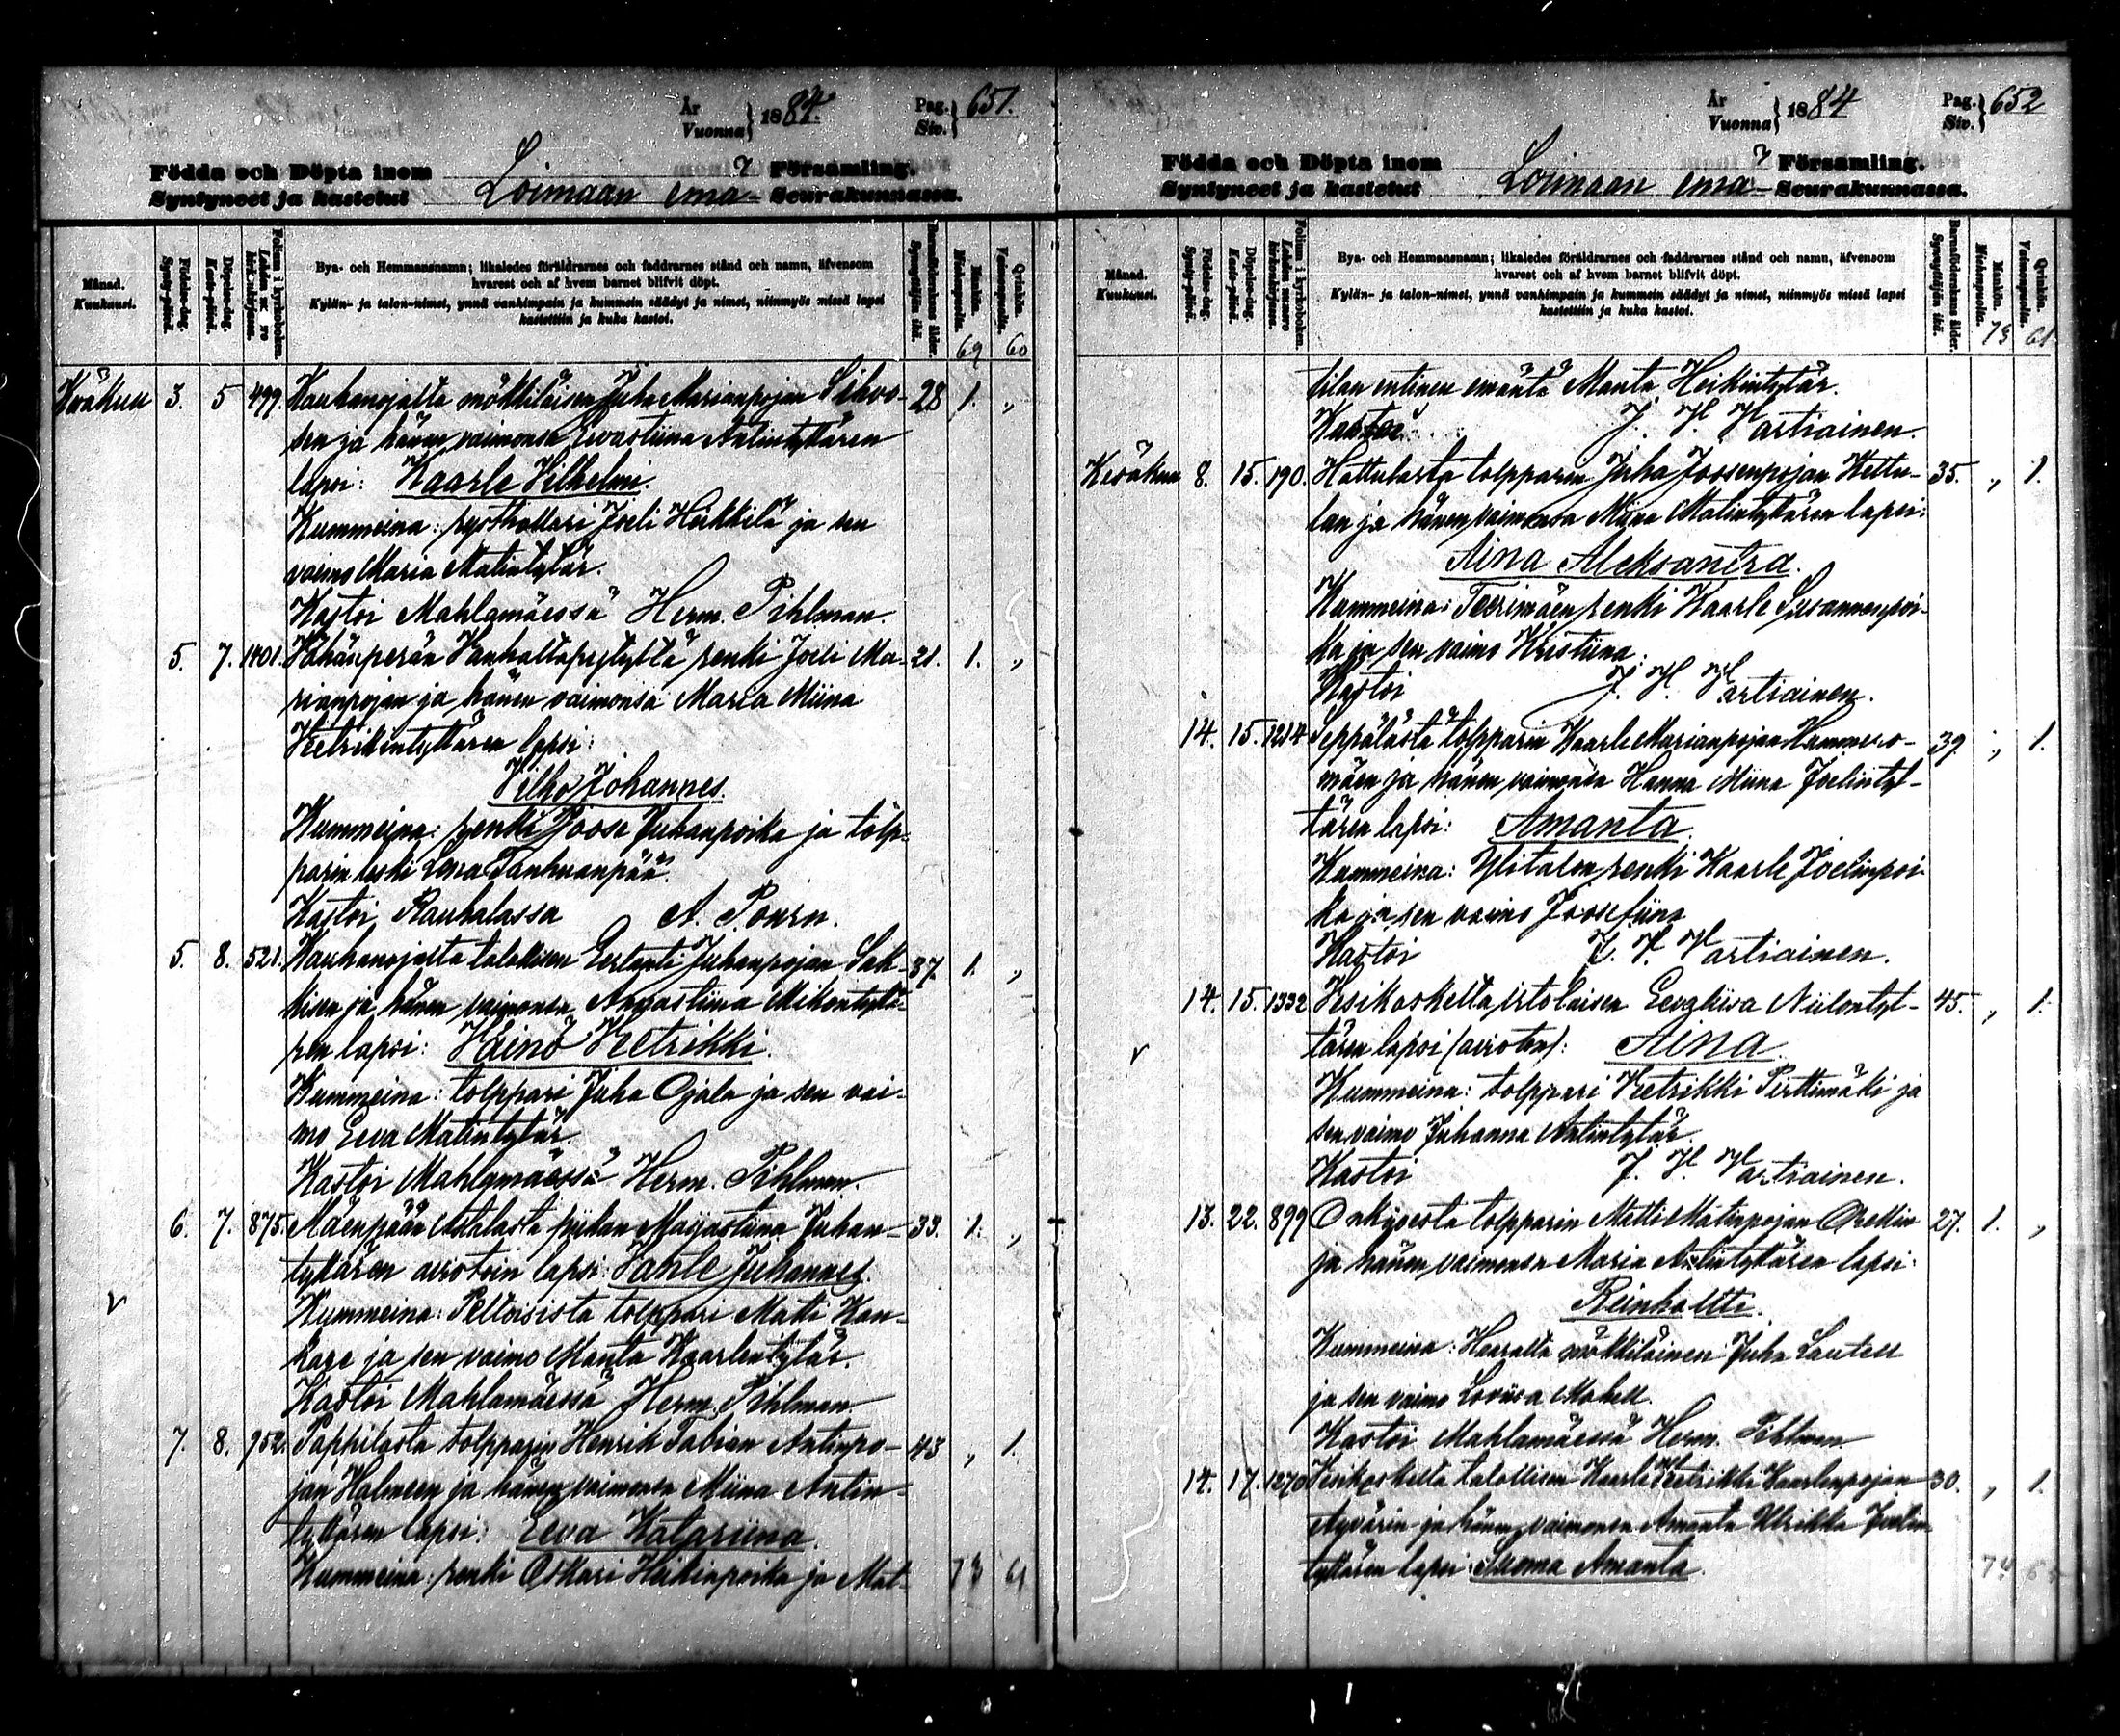 År
Vuonna } 1884. Pag.
Siv. } 651.
Födda och Döpta inom Församling.
Syntyneet ja kastetut Loimaan emä- Seurakunnassa.
Månad.
Kuukausi.
Födelse-dag.
Synty-päivä.
Döpelse-dag.
Kaste-päivä.
Folium i kyrkoboken.
Bya- och Hemmansnamn; likaledes föräldrarnes och faddrarnes stånd och namn, äfvensom
hvarest och af hvem barnet blifvit döpt.
Kylän- ja talon-nimet, ynnä vanhimpain ja kummein säädyt ja nimet, niinmyös missä lapsi
kastettiin ja kuka kastoi.
Barnaföderskans ålder.
Synnyttäjän ikä.
Mankön.
Miehenpuolia.
Qvinkön.
Vaimonpuolia.
69 60
3. 5 499. Kauhanojalta mökkiläisen Juha Marianpojan 28 1. „
sen ja hänen vaimonsa Eevastiina Antintyttären
lapsi: Kaarle Vilhelmi.
Kummeina: rysthollari Joeli Heikkilä ja sen
vaimo Maria Matintytär.
Kastoi Mahlamäessä Herm. Pihlman.
5. 7. 1401. renki Joeli Ma- 21. 1. „
rianpojan ja hänen vaimonsa Maria Miina
Vetrikintyttären lapsi:
Vilho Johannes.
Kummeina: renki Joose Juhanpoika ja tolp-
parin leski Tanhuanpää.
Kastoi Rauhalassa A.
5. 8. 521. Kauhanojalta talollisen Juhanpojan Sak- 37. 1. „
kisen ja hänen vaimonsa Mikontyttä-
ren lapsi: Väinö Vetrikki.
Kummeina: tolppari Juha Ojala ja sen vai-
mo Eeva Matintytär.
Kastoi Mahlamäessä Herm. Pihlman.
6. 7. 875. Mäenpään piikan Maijastiina Juhan- 33. 1. „
tyttären avioton lapsi: Juhannes.
Kummeina: Peltoisista tolppari Matti Kan-
kare ja sen vaimo Manta Kaarlentytär.
Kastoi Mahlamäessä Herm. Pihlman.
7. 8. 952. Pappilasta tolpparin Henrik Fabian Antinpo- 43 „ 1.
jan Halmeen ja hänen vaimonsa Miina Antin-
tyttären lapsi: Eeva Katariina.
Kummeina: renki Oskari Heikinpoika ja Mat- 73 61
År
Vuonna } 1884 Pag.
Siv. } 652
Födda och Döpta inom Församling.
Syntyneet ja kastetut Loimaan emä- Seurakunnassa.
Månad.
Kuukausi.
Födelse-dag.
Synty-päivä.
Döpelse-dag.
Kaste-päivä.
Folium i kyrkoboken.
Bya- och Hemmansnamn; likaledes föräldrarnes och faddrarnes stånd och namn, äfvensom
hvarest och af hvem barnet blifvit döpt.
Kylän- ja talon-nimet, ynnä vanhimpain ja kummein säädyt ja nimet, niinmyös missä lapsi
kastettiin ja kuka kastoi.
Barnaföderskans ålder.
Synnyttäjän ikä.
Mankön.
Miehenpuolia.
Qvinkön.
Vaimonpuolia.
73 61
tilan entinen emäntä Manta Heikintytär.
Kastoi J. H. Vartiainen.
Kesäkuu 8. 15. 190. Hattulasta tolpparin Juha Joosenpojan Hattu- 35. „ 1.
lan ja hänen vaimonsa Miina Matintyttären lapsi:
Aina Aleksantra.
Kummeina: renki Kaarle Susannanpoi-
ka ja sen vaimo Kristiina.
Kastoi J. H. Vartiainen.
14. 15. 1214 Seppälästä tolpparin Kaarle Marianpojan 39 „ 1.
mäen ja hänen vaimonsa Hanna Miina Joelintyt-
tären lapsi: Amanta.
Kummeina: renki Kaarle Joelinpoi-
ka ja sen vaimo Joosefiina
Kastoi J. H. Vartiainen.
14. 15. 1332 Vesikoskelta itsellisen Eevaliisa Niilontyt- 45. „ 1.
tären lapsi (avioton): Aina.
Kummeina: tolppari Vetrikki Perttimäki ja
sen vaimo Juhanna Antintytär.
Kastoi J. H. Vartiainen.
13. 22. 899 Onkijoesta tolpparin Matti Matinpojan 27. 1. „
ja hänen vaimonsa Maria Antintyttären lapsi:
Reinholtti.
Kummeina: Haaralta mökkiläinen Juha Lautell
ja sen vaimo Loviisa
Kastoi Mahlamäessä Herm. Pihlman.
14. 17. 1270 Vesikoskelta talollisen Kaarle Vetrikki Kaarlenpojan 30. „ 1.
Äyvärin ja hänen vaimonsa Amanta Ulrikka Joelin-
tyttären lapsi: Suoma Amanta. 74